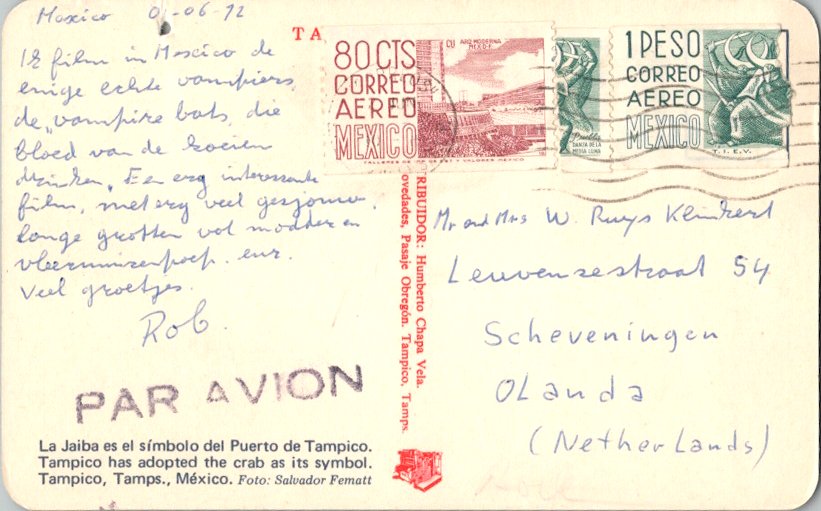 Mexico 01-06-72
Ik film in Mexico de
enige echte vampiers,
de "vampire bats, die
bloed van de koeien
drinken". Een erg interessante
film, met erg veel gesjouw,
lange grotten vol modder en
vleermuizenpoep. enz.
Veel groetjes.
Rob.
PAR AVION
La Jaiba es el símbolo del Puerto de Tampico.
Tampico has adopted the crab as its symbol.
Tampico, Tamps., México. Foto: Salvador Fematt
TA
RIBUIDOR: Humberto Chapa Vela.
ovedades, Pasaje Obregón. Tampico, Tamps.
80 CTS
CORREO
AEREO
MEXICO
CU ARQ. MODERNA
MEXICO
Puebla
DANZA DE LA
MEDIA LUNA
1 PESO
CORREO
AEREO
MEXICO
T. I. E. V.
Mr and Mrs W. Ruys Klinkert
Leuvensestraat 54
Scheveningen
OLanda
(NetherLands)